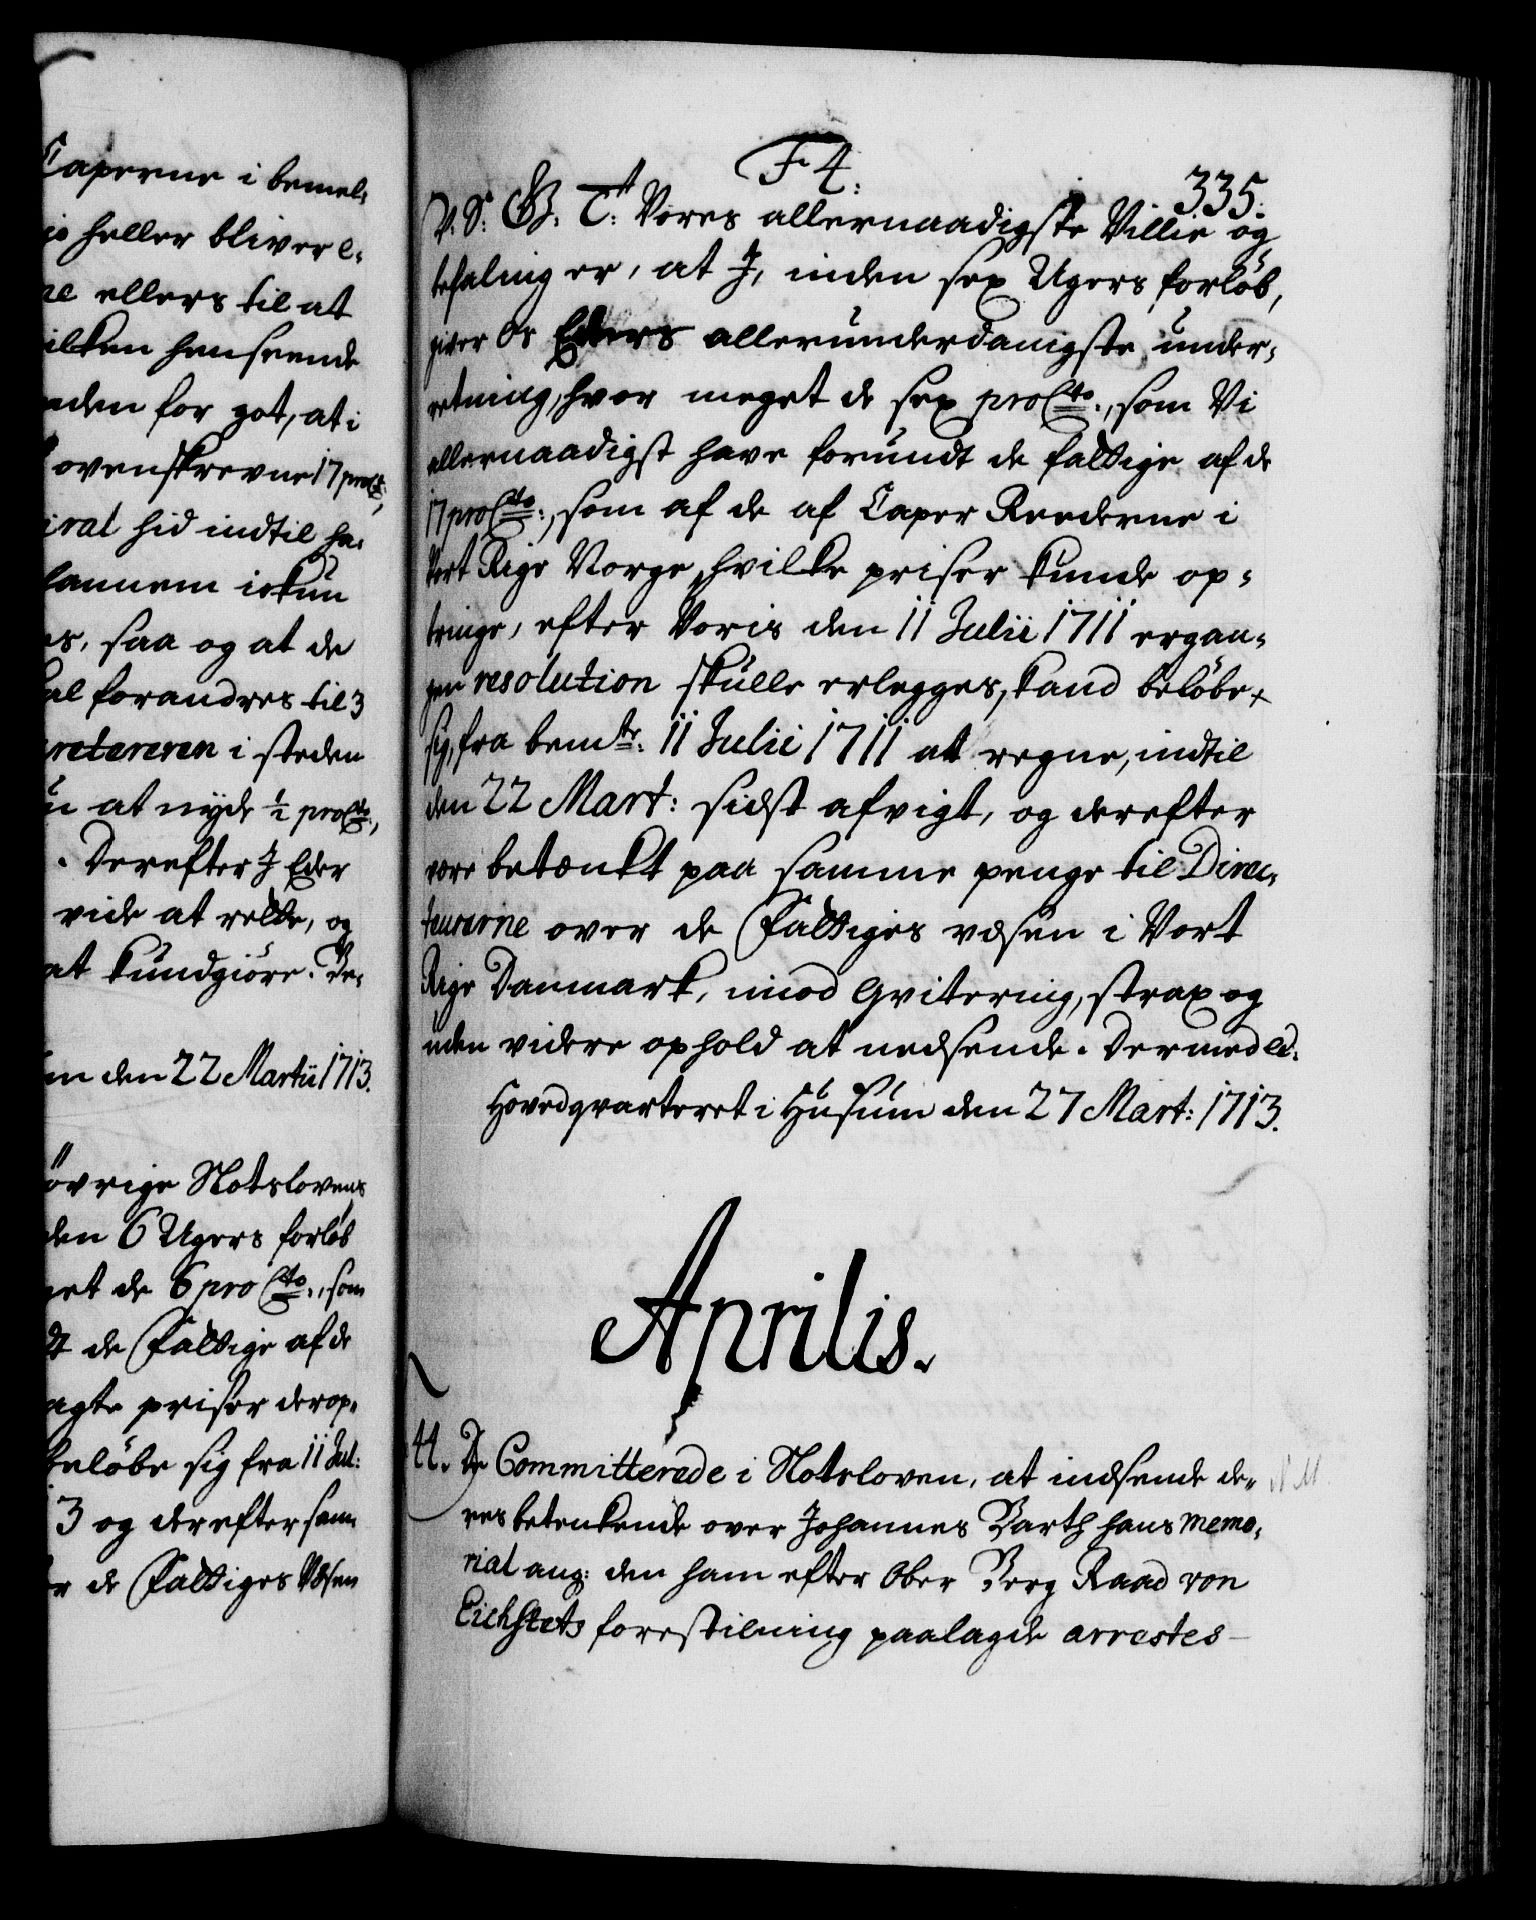 Caperne i bemel¬
heller bliver e¬
ellers til at
hilken henseende
for got, at i
ovenskrevne 17 procto,
hid indtil ha¬
iskun
saa og at de
forandres til 3
i steden
at nyde ½ procto,
Derefter I Eder
vide at rette, og
at kundgiøre. De¬
den 22 Martii 1713.
övrige Slotslovens
6 Ugers forløb
de 6 pro Cto, som
de Fattige af de
priser der op¬
beløbe sig fra 11 Jul:
3 og derefter sam¬
de Fattiges Væsen
F 4.
335.
V. S: G. T: Vores allernaadigste Villie og
befaling er, at I, inden sex Ugers forløb,
giver Os Eders allerunderdanigste under¬
retning, hvor meget de sex pro Cto., som Vi
allernaadigst have forundt de fattige af de
17 pro Cto:, som af de af Caper Reederne i
Vort Rige Norge hvilke priser kunde op¬
bringe, efter Voris den 11 Julii 1711 ergan¬
gen resolution skulle erlegges, kand beløbe
sig, fra bemte: 11 Julii 1711 at regne, indtil
den 22 Mart: sidst afvigt, og derefter
være betænkt paa samme penge til Direc¬
teurerne over de Fattiges væsen i Vort
Rige Danmark, imod Qvitering, strax og
uden videre ophold at nedsende. Dermed etc.
Hovedqvarteret i Husum den 27 Mart: 1713.
Aprilis.
44. De Committerede i Slotsloven, at indsende de¬
res betenkende over Johannes Barth hans memo¬
rial ang: den ham efter Ober Berg Raad von
Eichstets forestilning paalagde arrestes